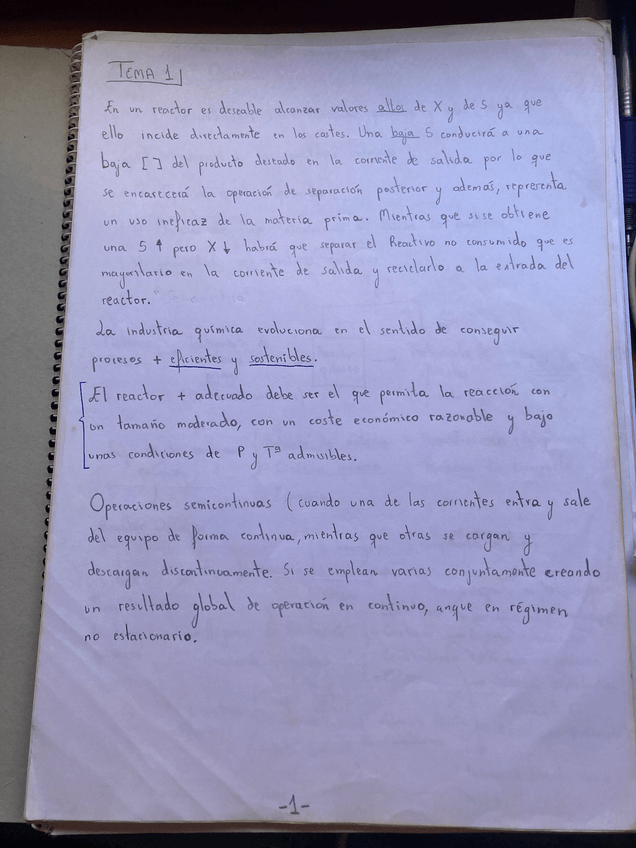 TEMA 1
En un reactor es deseable alcanzar valores altos de X y de S ya que
ello incide directamente en los costes. Una baja S conducirá a una
baja [ ] del producto deseado en la corriente de salida por lo que
se encarecerá la operación de separación posterior y además, representa
un uso ineficaz de la materia prima. Mientras que si se obtiene
una S ↑ pero X ↓ habrá que separar el Reactivo no consumido que es
mayoritario en la corriente de salida y reciclarlo a la entrada del
reactor.
La industria química evoluciona en el sentido de conseguir
procesos + eficientes y sostenibles.
El reactor + adecuado debe ser el que permita la reacción con
un tamaño moderado, con un coste económico razonable y bajo
unas condiciones de P y Tª admisibles.
Operaciones semicontinuas (cuando una de las corrientes entra y sale
del equipo de forma continua, mientras que otras se cargan y
descargan discontinuamente. Si se emplean varias conjuntamente creando
un resultado global de operación en continuo, anque en régimen
no estacionario.
-1-